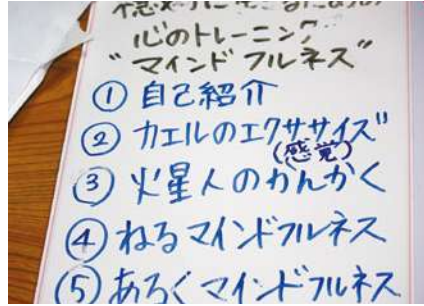 心のトレーニング
"マインドフルネス"
① 自己紹介
② カエルのエクササイズ"
(感覚)
③ 火星人のかんかく
④ ねるマインドフルネス
⑤ あるくマインドフルネス